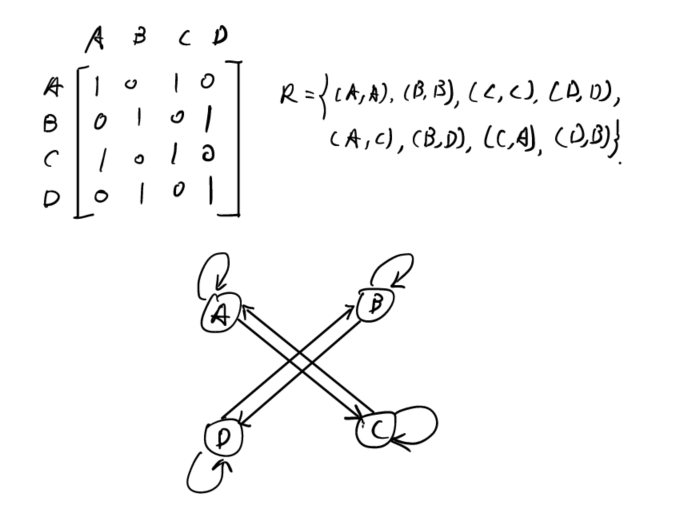 A B C D
A 1 0 1 0
B 0 1 0 1
C 1 0 1 0
D 0 1 0 1
R = {(A,A), (B,B), (C,C), (D,D),
(A,C), (B,D), (C,A), (D,B)}.
A B
D C